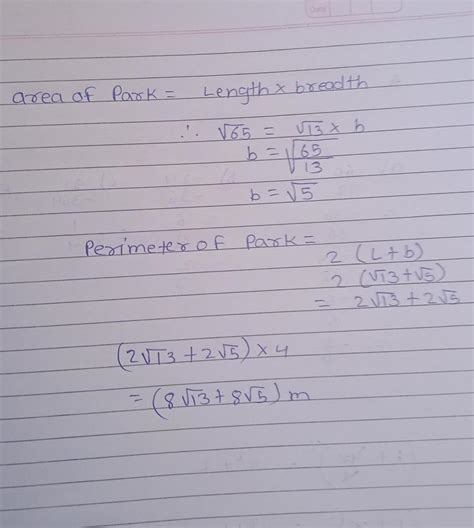 area of Park = Length × breadth
∴ √65 = √13 × b
b = √65/13
b = √5
Perimeter of Park =
2 (L + b)
2 (√13 + √5)
= 2√13 + 2√5
(2√13 + 2√5) × 4
= (8√13 + 8√5) m